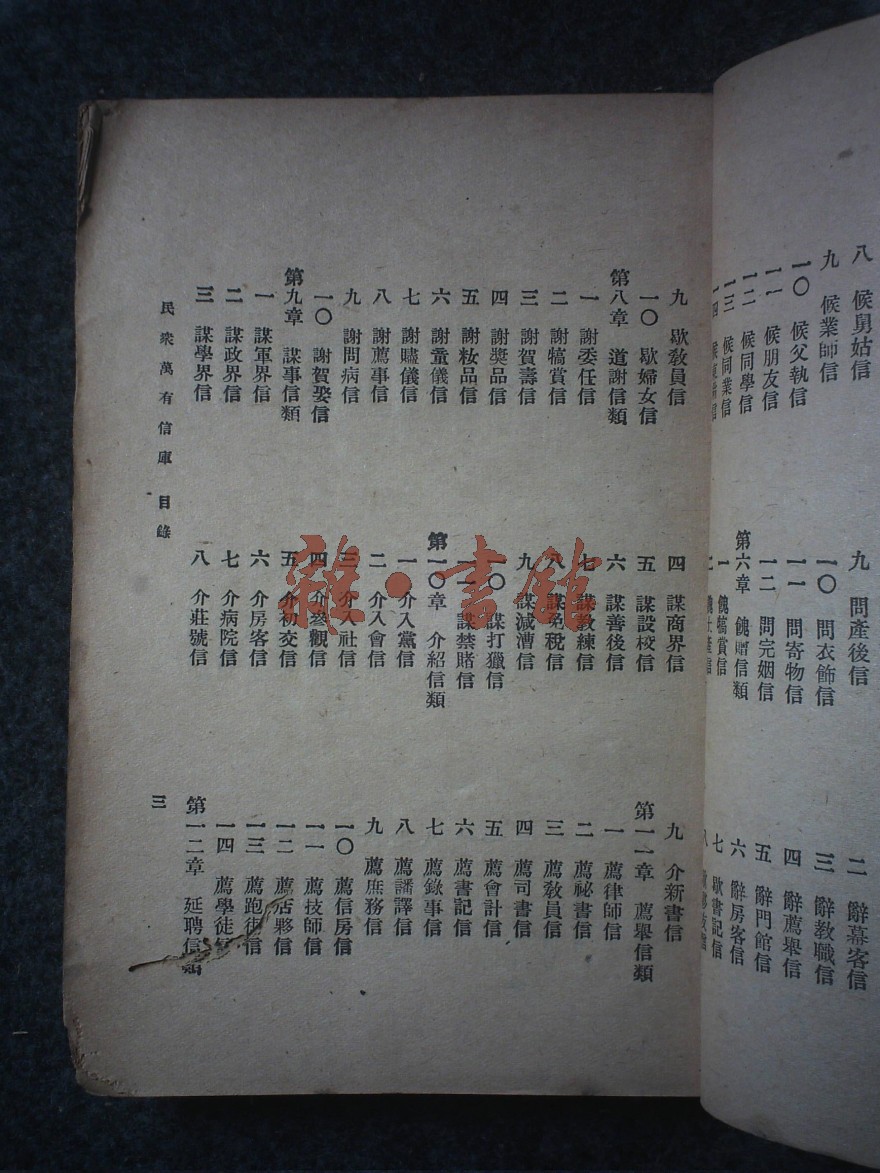 八 候舅姑信
九 候業師信
一〇 候父執信
一一 候朋友信
一二 候同學信
一三 候同業信
一四 候
九 問產後信
一〇 問衣飾信
一一 問寄物信
一二 問完姻信
第六章 餽贈信類
一 餽犒賞信
二 餽土產信
二 辭幕客信
三 辭教職信
四 辭薦舉信
五 辭門館信
六 辭房客信
七 歇書記信
八
九 歇教員信
一〇 歇婦女信
第八章 道謝信類
一 謝委任信
二 謝犒賞信
三 謝賀壽信
四 謝獎品信
五 謝妝品信
六 謝奩儀信
七 謝贐儀信
八 謝薦事信
九 謝問病信
一〇 謝賀娶信
第九章 謀事信類
一 謀軍界信
二 謀政界信
三 謀學界信
四 謀商界信
五 謀設校信
六 謀善後信
七 謀教練信
八 謀免稅信
九 謀減漕信
一〇 謀打獵信
一一 謀禁賭信
第一〇章 介紹信類
一 介入黨信
二 介入會信
三 介入社信
四 介參觀信
五 介初交信
六 介房客信
七 介病院信
八 介莊號信
九 介新書信
第一一章 薦舉信類
一 薦律師信
二 薦祕書信
三 薦教員信
四 薦司書信
五 薦會計信
六 薦書記信
七 薦錄事信
八 薦譯信
九 薦庶務信
一〇 薦信房信
一一 薦技師信
一二 薦店夥信
一三 薦跑街信
一四 薦學徒信
第一二章 延聘信類
民衆萬有信庫 目錄
三
雜·書館